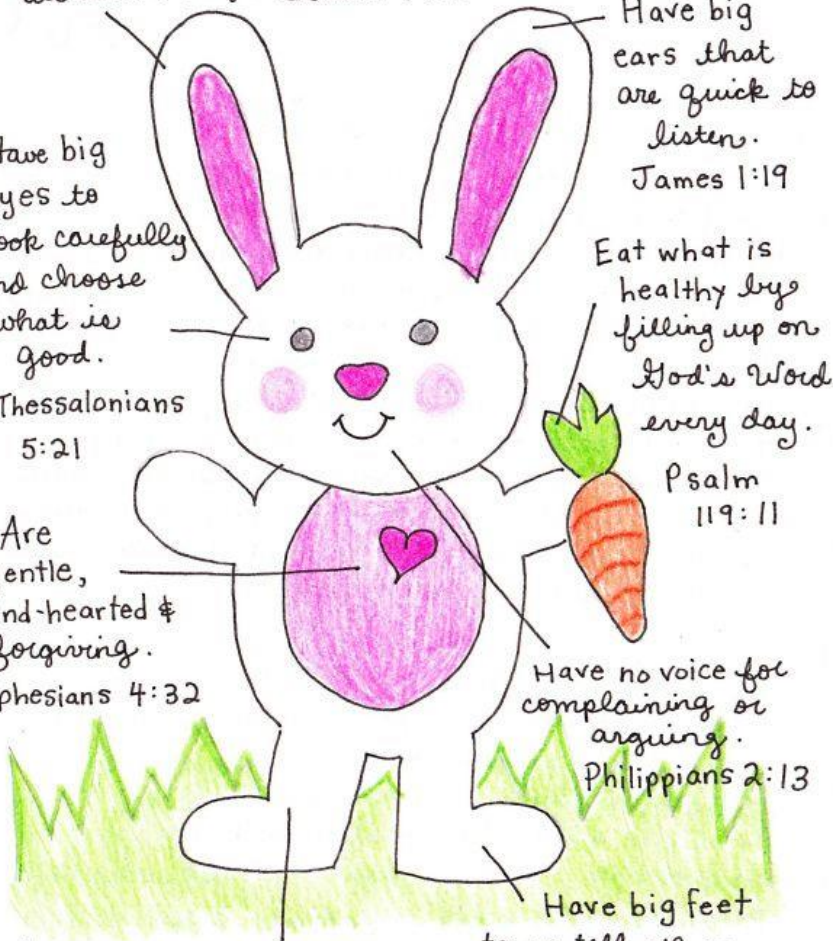 Have big
ears that
are quick to
listen.
James 1:19
Have big
yes to
ook carefully
nd choose
what is
good.
Thessalonians
5:21
Eat what is
healthy by
filling up on
God's Word
every day.
Psalm
119:11
Are
entle,
nd-hearted &
forgiving.
phesians 4:32
Have no voice for
complaining or
arguing.
Philippians 2:13
Have big feet